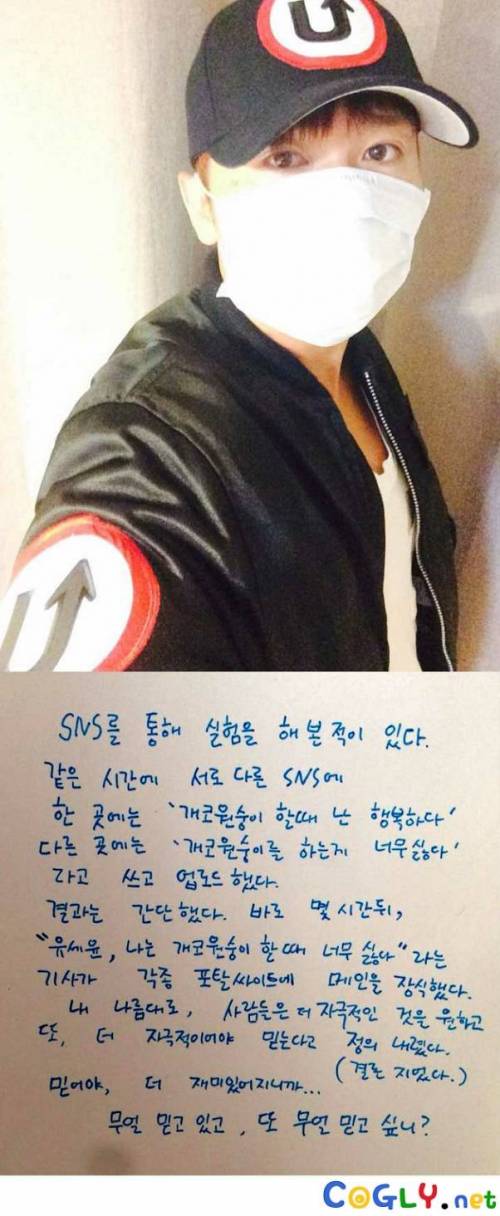 SNS를 통해 실험을 해본적이 있다.
같은 시간에 서로 다른 SNS에
한 곳에는 '개코원숭이 할때 난 행복하다'
다른 곳에는 '개코원숭이를 하는게 너무싫다'
라고 쓰고 업로드했다.
결과는 간단했다. 바로 몇시간뒤,
"유세윤, 나는 개코원숭이 할때 너무 싫다" 라는
기사가 각종 포탈싸이트에 메인을 장식했다.
내 나름대로, 사람들은 더 자극적인 것을 원하고
또, 더 자극적이어야 믿는다고 정의 내렸다.
(결론 지었다.)
믿어야, 더 재미있어지니까...
무얼 믿고 있고, 또 무얼 믿고 싶니?
COGLY.net